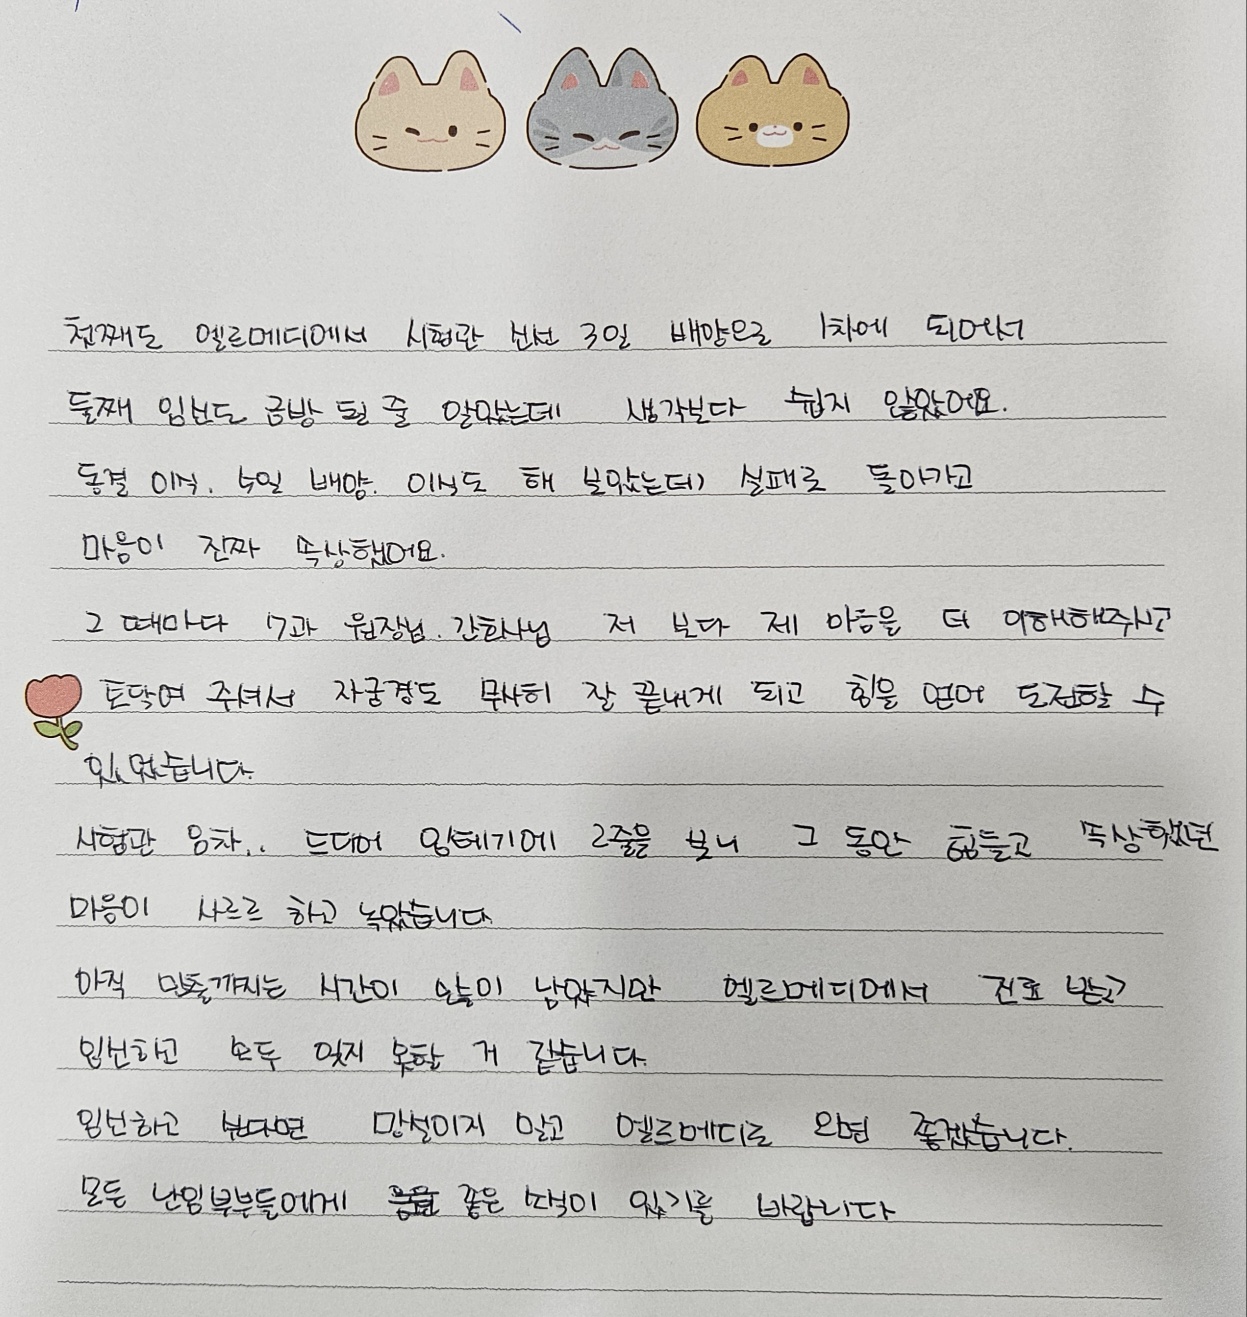 첫째도 엘르메디에서 시험관 신선 3일 배양으로 1차에 되어서
둘째 임신도 금방 될 줄 알았는데 생각보다 쉽지 않았어요.
동결 이식. 5일 배양. 이식도 해 보았는데 실패로 돌아가고
마음이 진짜 속상했어요.
그 때마다 7과 원장님. 간호사님 저 보다 제 마음을 더 이해해주시고
토닥여 주셔서 자궁경도 무사히 잘 끝내게 되고 힘을 얻어 도전할 수
있었습니다.
시험관 차.. 드디어 임테기에 2줄을 보니 그 동안 힘들고 속상했던
마음이 사르르 하고 녹았습니다
아직 만출까지는 시간이 많이 남았지만 엘르메디에서 진료 받고
임신하고 모두 잊지 못할 거 같습니다.
임신하고 싶다면 망설이지 말고 엘르메디로 오면 좋겠습니다.
모든 난임부부들에게 좋은 소식이 있기를 바랍니다